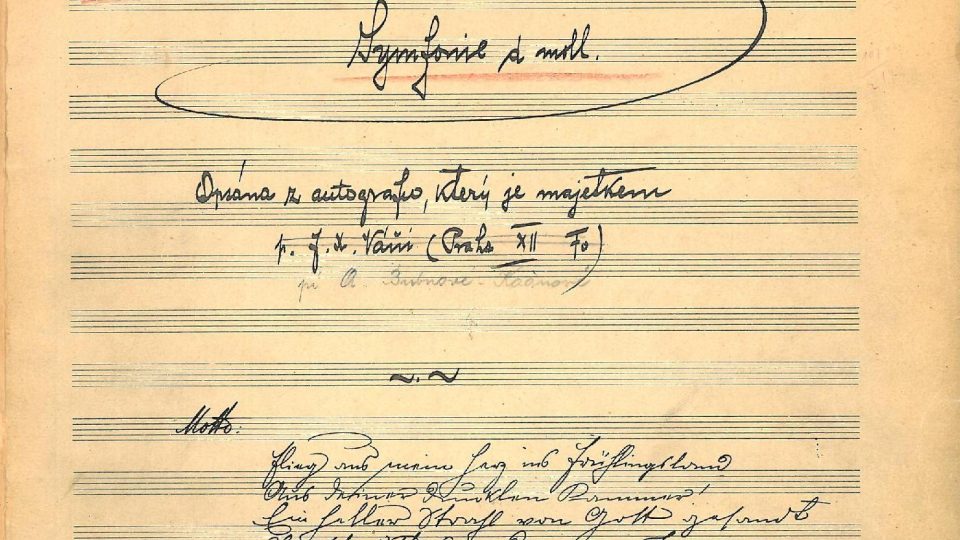 Symfonie d moll.
Opsána z autografu, který je majetkem
p. J. X. Váni (Praha XII Fo)
pí A.
Motto:
Flieg aus mein Herz ins Frühlingsland
Aus deiner dunklen Kammer!
Ein heller Strahl von Gott gesandt